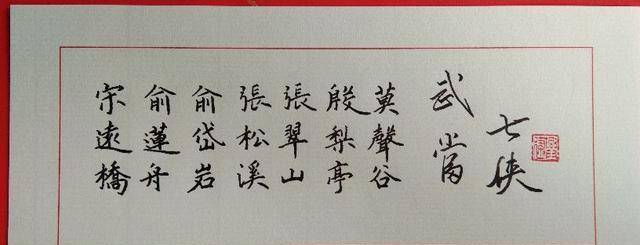 宋遠橋
俞蓮舟
俞岱岩
張松溪
張翠山
殷梨亭
莫聲谷
武當
七俠